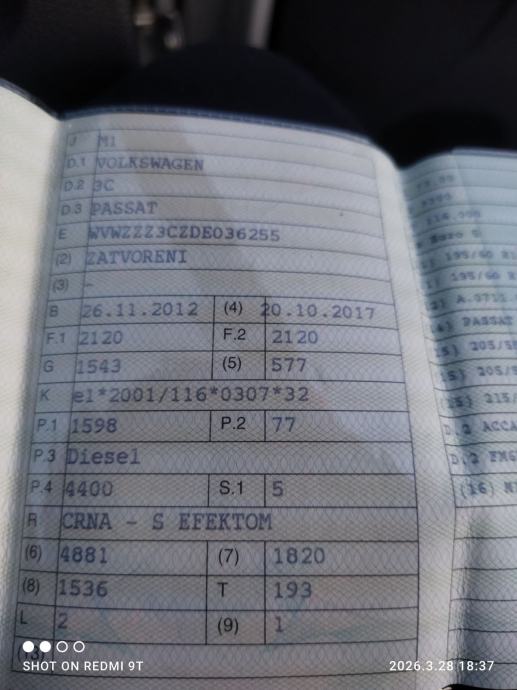 J M1
D.1 VOLKSWAGEN
D.2 3C
D.3 PASSAT
E WVWZZZ3CZDE036255
(2) ZATVORENI
(3) -
B 26.11.2012 (4) 20.10.2017
F.1 2120 F.2 2120
G 1543 (5) 577
K e1*2001/116*0307*32
P.1 1598 P.2 77
P.3 Diesel
P.4 4400 S.1 5
R CRNA - S EFEKTOM
(6) 4881 (7) 1820
(8) 1536 T 193
L 2 (9) 1
Euro 5
195/60
195/60
PASSAT
205/5
205/5
215/
D.2 ACCA
D.2
(16)
SHOT ON REDMI 9T 2026.3.28 18:37